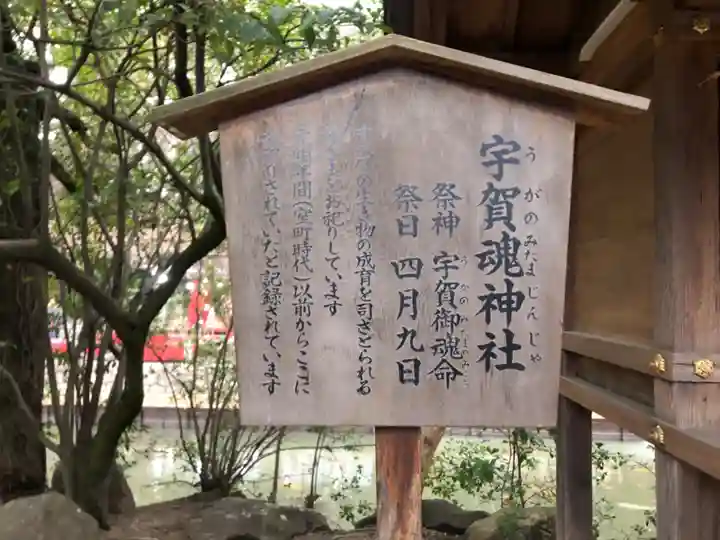 宇賀魂神社
うがのみたまじんじゃ
祭神 宇賀御魂命
うかのみたまのみこと
祭日 四月九日
の生き物の成育を司さどられる
お祀りしています
年間(室町時代)以前からここに
されていたと記録されています